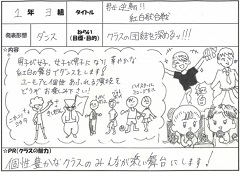 1年 3組 タイトル 男女逆転!! 紅白歌合戦
発表形態 ダンス ねらい(目標・目的) クラスの団結を深める!!!
☆内容
男子が女子、女子が男子になり、華やかな
紅白の舞台でダンスをします!
ユーモアと個性あふれる演技を
どうぞお楽しみ下さい!
☆PR(クラスの魅力)
個性豊かなクラスのみんなが熱い舞台にします!